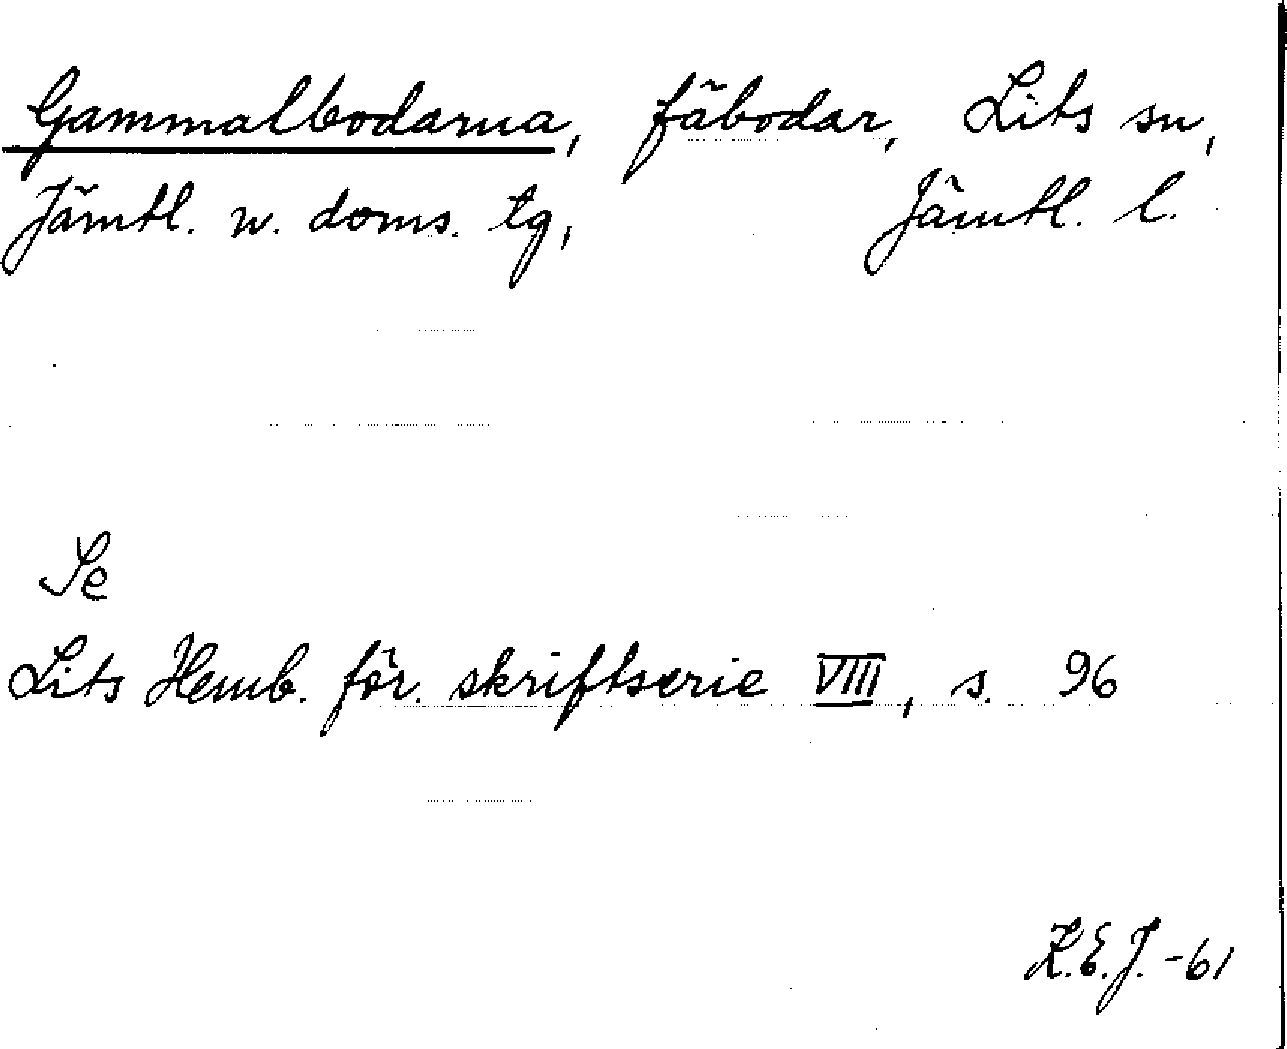 Gammalbodarna, fäbodar, Lits sn,
Jämtl. n. doms. tg, Jämtl. l.
Se
Lits Hemb. för. skriftserie VIII, s. 96
K.E.J. -61